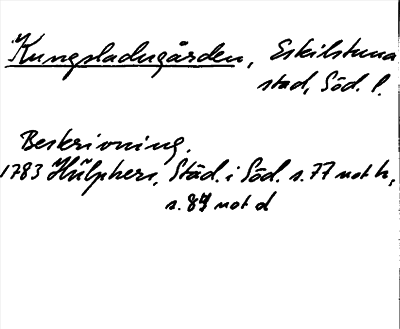 Kungsladugården, Eskilstuna
stad, Söd. l.
Beskrivning.
1783 Hülphers, Städ. i Söd. s. 77 not h,
s. 87 not d